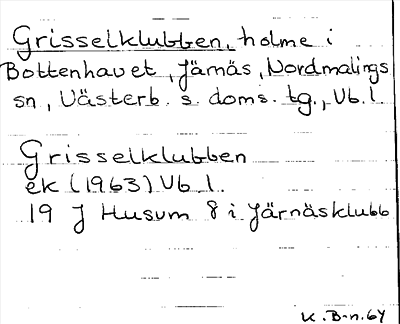 Grisselklubben, holme i
Bottenhavet, Järnäs, Nordmalings
sn, Västerb. s. doms. tg., Vb. l.
Grisselklubben
ek (1963) Vb. l.
19 J Husum 8 i Järnäsklubb
K. B-n. 64